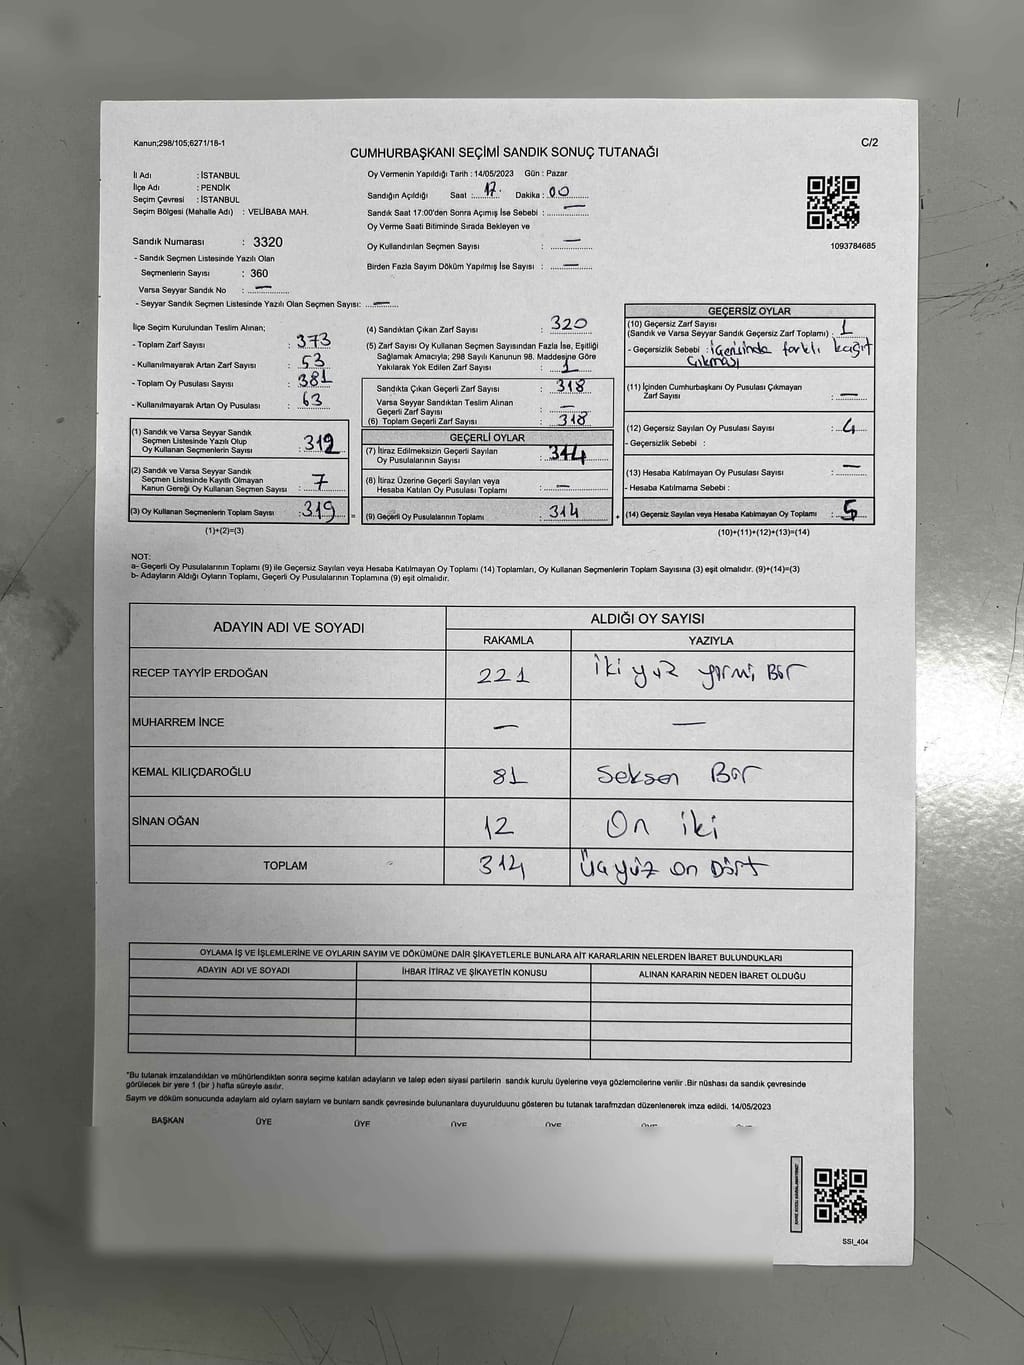 Kanun;298/105;6271/18-1
C/2
CUMHURBAŞKANI SEÇİMİ SANDIK SONUÇ TUTANAĞI
İl Adı : İSTANBUL
İlçe Adı : PENDİK
Seçim Çevresi : İSTANBUL
Seçim Bölgesi (Mahalle Adı) : VELİBABA MAH.
Sandık Numarası : 3320
- Sandık Seçmen Listesinde Yazılı Olan
Seçmenlerin Sayısı : 360
Varsa Seyyar Sandık No : —
- Seyyar Sandık Seçmen Listesinde Yazılı Olan Seçmen Sayısı: —
Oy Vermenin Yapıldığı Tarih : 14/05/2023 Gün : Pazar
Sandığın Açıldığı Saat : 17. Dakika : 00
Sandık Saat 17:00'den Sonra Açımış İse Sebebi : —
Oy Verme Saati Bitiminde Sırada Bekleyen ve
Oy Kullandırılan Seçmen Sayısı : —
Birden Fazla Sayım Döküm Yapılmış İse Sayısı : —
1093784685
İlçe Seçim Kurulundan Teslim Alınan;
- Toplam Zarf Sayısı : 373
- Kullanılmayarak Artan Zarf Sayısı : 53
- Toplam Oy Pusulası Sayısı : 381
- Kullanılmayarak Artan Oy Pusulası : 63
(1) Sandık ve Varsa Seyyar Sandık
Seçmen Listesinde Yazılı Olup
Oy Kullanan Seçmenlerin Sayısı : 312
(2) Sandık ve Varsa Seyyar Sandık
Seçmen Listesinde Kayıtlı Olmayan
Kanun Gereği Oy Kullanan Seçmen Sayısı : 7
(3) Oy Kullanan Seçmenlerin Toplam Sayısı : 319
(1)+(2)=(3)
(4) Sandıktan Çıkan Zarf Sayısı : 320
(5) Zarf Sayısı Oy Kullanan Seçmen Sayısından Fazla İse, Eşitliği
Sağlamak Amacıyla; 298 Sayılı Kanunun 98. Maddesine Göre
Yakılarak Yok Edilen Zarf Sayısı : 1
Sandıkta Çıkan Geçerli Zarf Sayısı : 318
Varsa Seyyar Sandıktan Teslim Alınan
Geçerli Zarf Sayısı : —
(6) Toplam Geçerli Zarf Sayısı : 318
GEÇERLİ OYLAR
(7) İtiraz Edilmeksizin Geçerli Sayılan
Oy Pusulalarının Sayısı : 314
(8) İtiraz Üzerine Geçerli Sayılan veya
Hesaba Katılan Oy Pusulası Toplamı : —
(9) Geçerli Oy Pusulalarının Toplamı : 314
GEÇERSİZ OYLAR
(10) Geçersiz Zarf Sayısı
(Sandık ve Varsa Seyyar Sandık Geçersiz Zarf Toplamı) : 1
- Geçersizlik Sebebi : içerisinde farklı kağıt
çıkması
(11) İçinden Cumhurbaşkanı Oy Pusulası Çıkmayan
Zarf Sayısı : —
(12) Geçersiz Sayılan Oy Pusulası Sayısı : 4
- Geçersizlik Sebebi :
(13) Hesaba Katılmayan Oy Pusulası Sayısı : —
- Hesaba Katılmama Sebebi :
(14) Geçersiz Sayılan veya Hesaba Katılmayan Oy Toplamı : 5
(10)+(11)+(12)+(13)=(14)
NOT:
a- Geçerli Oy Pusulalarının Toplamı (9) ile Geçersiz Sayılan veya Hesaba Katılmayan Oy Toplamı (14) Toplamları, Oy Kullanan Seçmenlerin Toplam Sayısına (3) eşit olmalıdır. (9)+(14)=(3)
b- Adayların Aldığı Oyların Toplamı, Geçerli Oy Pusulalarının Toplamına (9) eşit olmalıdır.
ADAYIN ADI VE SOYADI ALDIĞI OY SAYISI
RAKAMLA YAZIYLA
RECEP TAYYİP ERDOĞAN 221 iki yüz yirmi Bir
MUHARREM İNCE — —
KEMAL KILIÇDAROĞLU 81 Seksen Bir
SİNAN OĞAN 12 On iki
TOPLAM 314 Üçyüz on Dört
OYLAMA İŞ VE İŞLEMLERİNE VE OYLARIN SAYIM VE DÖKÜMÜNE DAİR ŞİKAYETLERLE BUNLARA AİT KARARLARIN NELERDEN İBARET BULUNDUKLARI
ADAYIN ADI VE SOYADI İHBAR İTİRAZ VE ŞİKAYETİN KONUSU ALINAN KARARIN NEDEN İBARET OLDUĞU
*Bu tutanak imzalandıktan ve mühürlendikten sonra seçime katılan adayların ve talep eden siyasi partilerin sandık kurulu üyelerine veya gözlemcilerine verilir .Bir nüshası da sandık çevresinde
görülecek bir yere 1 (bir ) hafta süreyle asılır.
Sayım ve döküm sonucunda adayların ald oyların sayları ve bunların sandk çevresinde bulunanlara duyurulduunu gösteren bu tutanak tarafmzdan düzenlenerek imza edildi. 14/05/2023
BAŞKAN ÜYE ÜYE ÜYE ÜYE
SSI_404